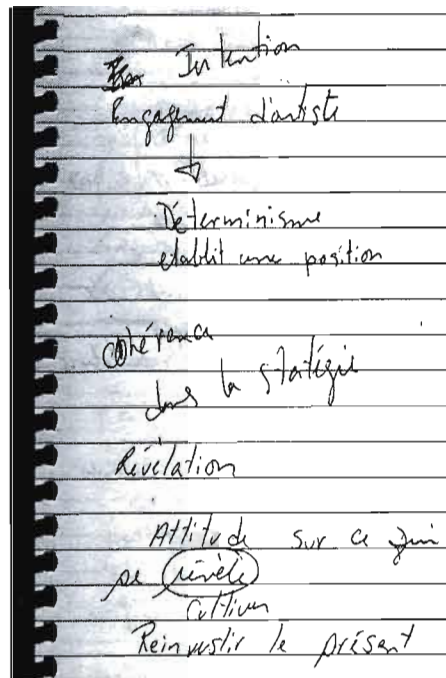 Intention
Engagement d'artiste
Déterminisme
etablit une position
Cohérence
dans la statégie
Révélation
Attitude sur ce qui
se révèle
Cultiver
Reinvestir le présent